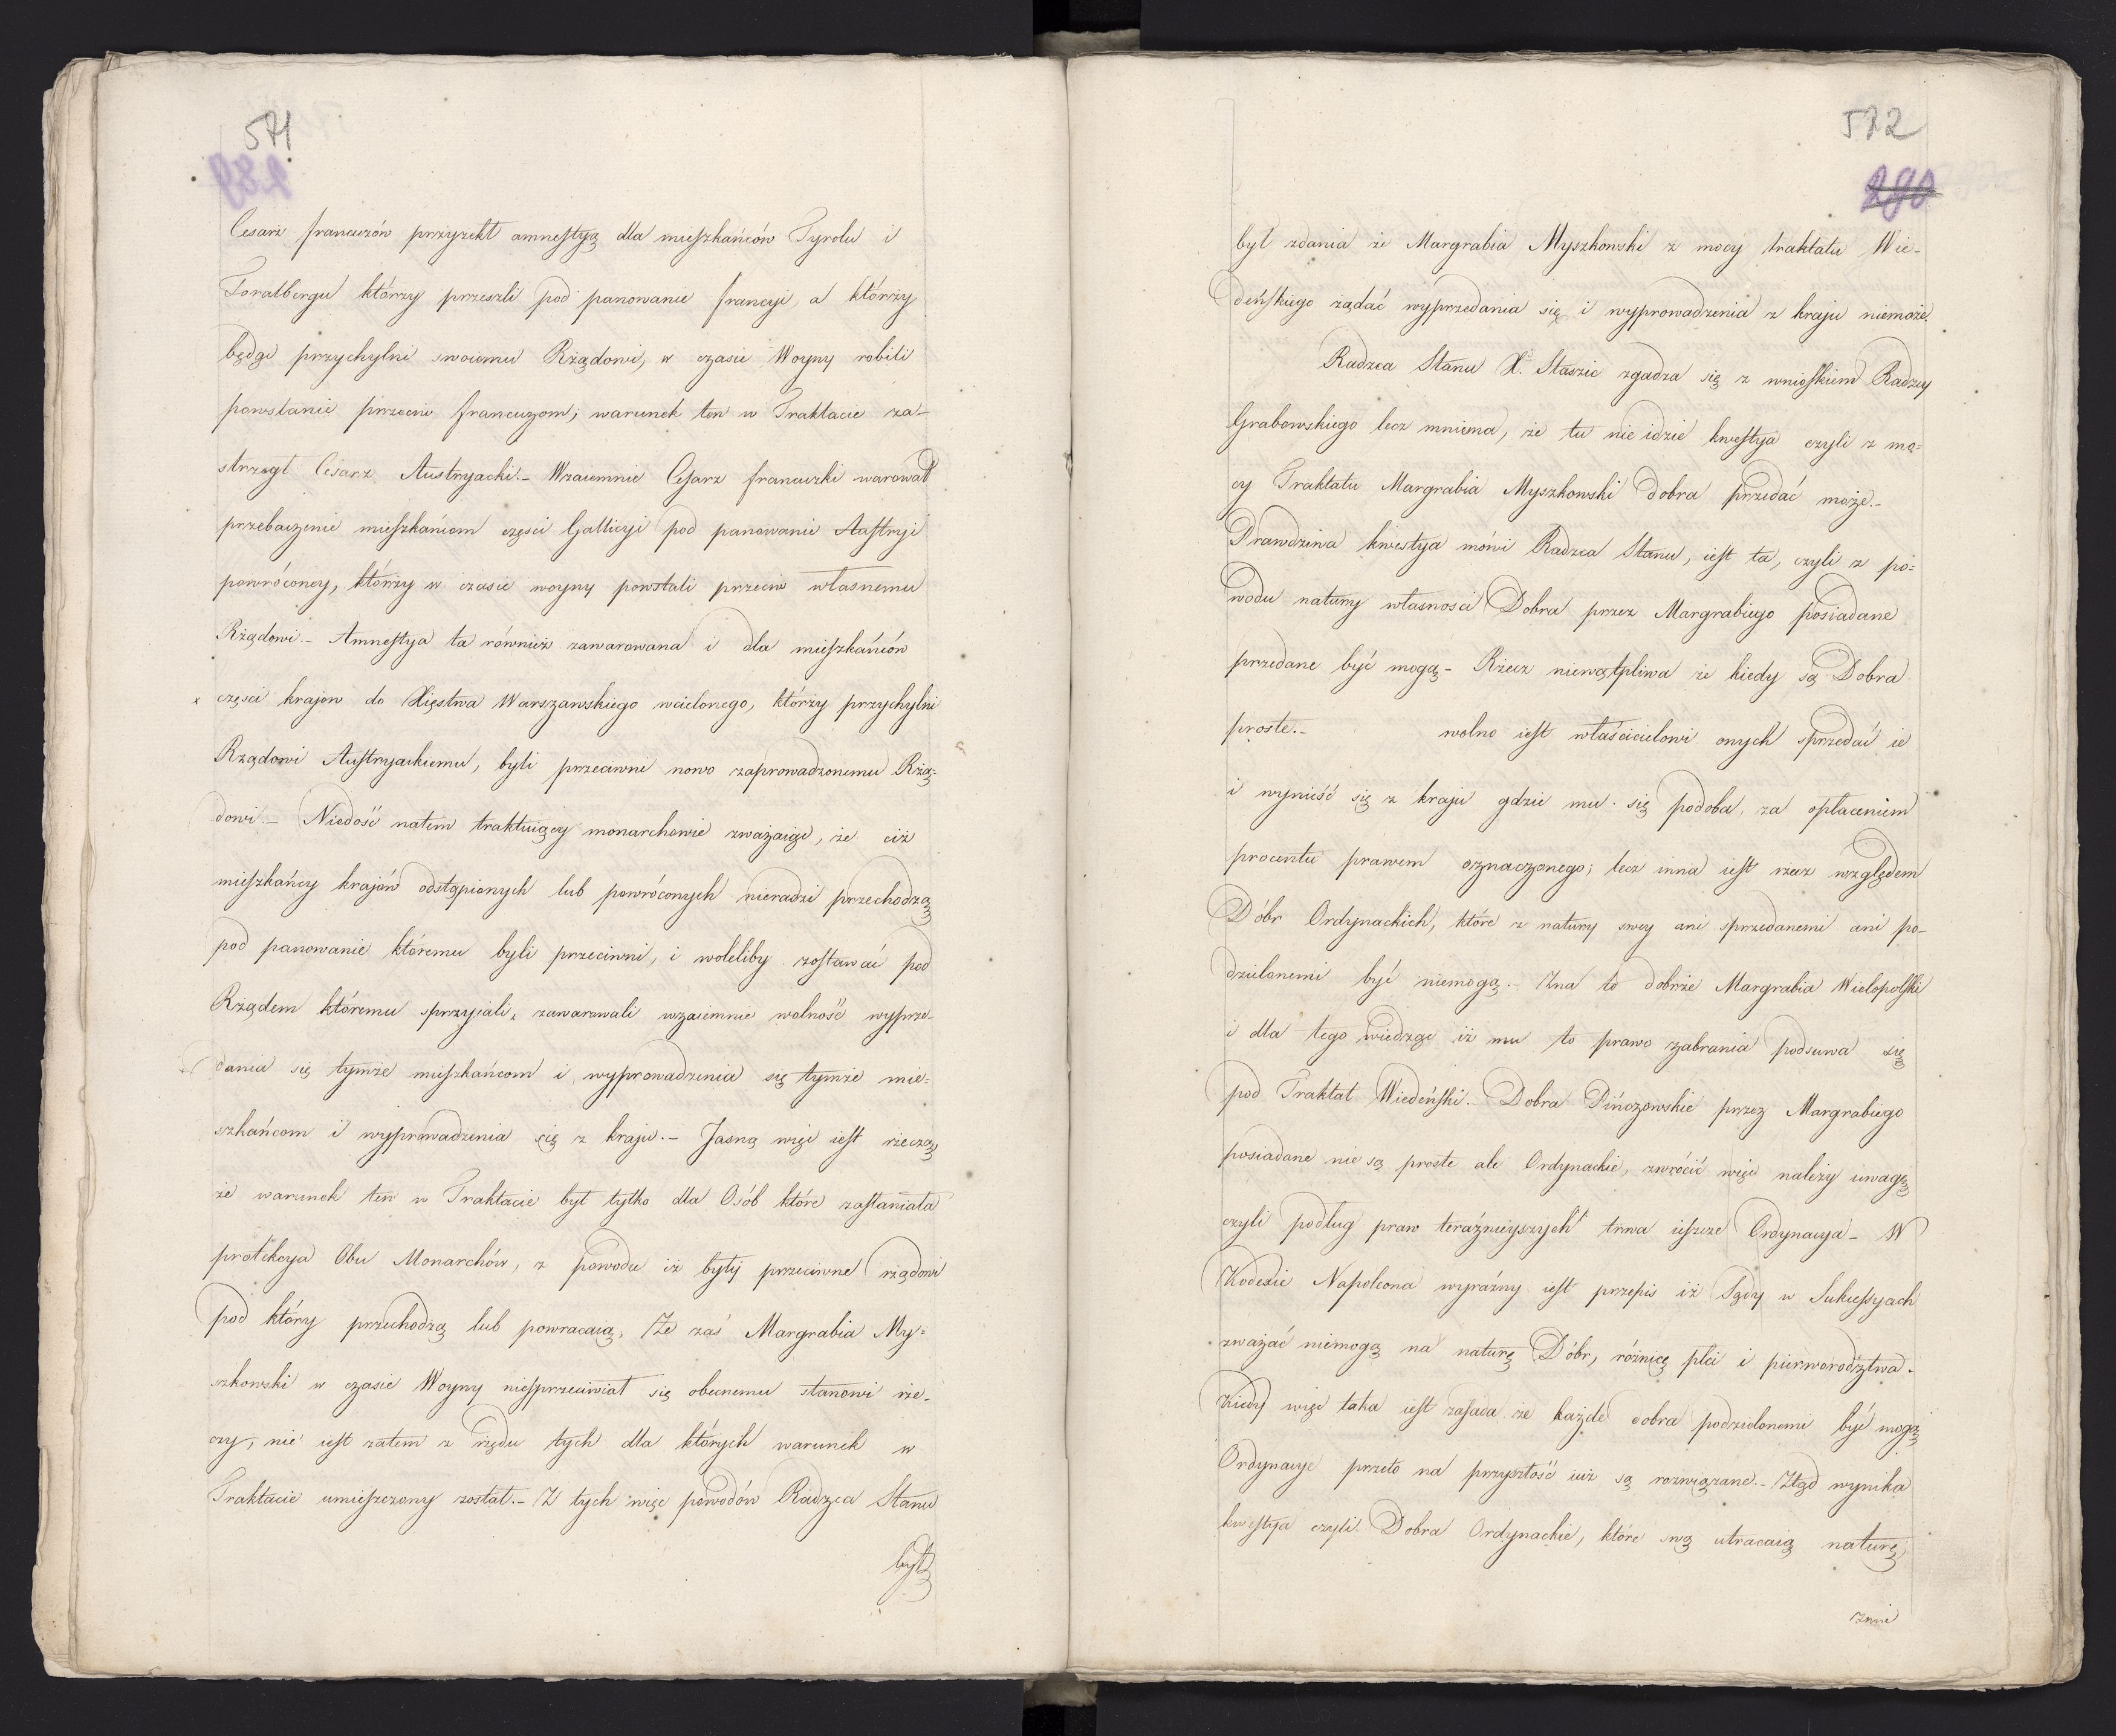 571
289
Cesarz francuzów przyrzekł amnestyą dla mieszkańców Tyrolu i
Foralbergu którzy przeszli pod panowanie francyi, a którzy
będąc przychylni swoiemu Rządowi, w czasie Woyny robili
powstanie przeciw francuzom; warunek ten w Traktacie za-
strzegł Cesarz Austryacki.- Wzaiemnie Cesarz francuzki warował
przebaczenie mieszkańcom części Gallicyi pod panowanie Austryi
powróconey, którzy w czasie woyny powstali przeciw własnemu
Rządowi.- Amnestya ta również zawarowana i dla mieszkańców
części krajow do Xięstwa Warszawskiego wcielonego, którzy przychylni
Rządowi Austryackiemu, byli przeciwni nowo zaprowadzonemu Rzą-
dowi.- Niedość natem traktuiący monarchowie zważaiąc, że ciż
mieszkańcy krajów odstąpionych lub powróconych nieradzi przechodzą
pod panowanie któremu byli przeciwni, i woleliby zostawać pod
Rządem któremu sprzyiali, zawarowali wzaiemnie wolność wyprze-
dania się tymże mieszkańcom i wyprowadzenia się tymże mie=
szkańcom i wyprowadzenia się z kraju.- Jasną więc iest rzeczą,
że warunek ten w Traktacie był tylko dla Osób które zasłaniała
protekcya Obu Monarchów, z powodu iż były przeciwne rządowi
pod który przechodzą lub powracaią, Że zaś Margrabia My=
szkowski w czasie Woyny niesprzeciwiał się obecnemu stanowi rze-
czy, nie iest zatem z rzędu tych dla których warunek w
Traktacie umieszczony został.- Z tych więc powodów Radzca Stanu
był
572
290
był zdania że Margrabia Myszkowski z mocy traktatu Wie-
deńskiego żądać wyprzedania się i wyprowadzenia z kraju niemoże.
Radzca Stanu X. Staszic zgadza się z wnioskiem Radzcy
Grabowskiego lecz mniema, że tu nie idzie kwestya czyli z mo=
cy Traktatu Margrabia Myszkowski dobra przedać może.-
Prawdziwa kwestya mówi Radzca Stanu, iest ta, czyli z po=
wodu natury własności Dobra przez Margrabiego posiadane
przedane być mogą - Rzecz niewątpliwa że kiedy są Dobra
proste.- wolno iest właścicielowi onych sprzedać ie
i wynieść się z kraju gdzie mu się podoba, za opłaceniem
procentu prawem oznaczonego; lecz inna iest rzecz względem
Dóbr Ordynackich, które z natury swey ani sprzedanemi ani po-
dzielonemi być niemogą.- Zna to dobrze Margrabia Wielopolski
i dla tego wiedząc iż mu to prawo zabrania podsuwa się
pod Traktat Wiedeński.- Dobra Pińczowskie przez Margrabiego
posiadane nie są proste ale Ordynackie, zwrócić więc należy uwagę
czyli podług praw teraźnieyszych trwa ieszcze Ordynacya - W
Kodexie Napoleona wyraźny iest przepis iż Sądy w Sukcessyach
zważać niemogą na naturę Dóbr, różnicę płci i pierworodztwa.
Kiedy więc taka iest zasada że każde dobra podzielonemi być mogą
Ordynacye przeto na przyszłość iuż są rozwiązane.- Ztąd wynika
kwestya czyli Dobra Ordynackie, które swą utracaią naturę,